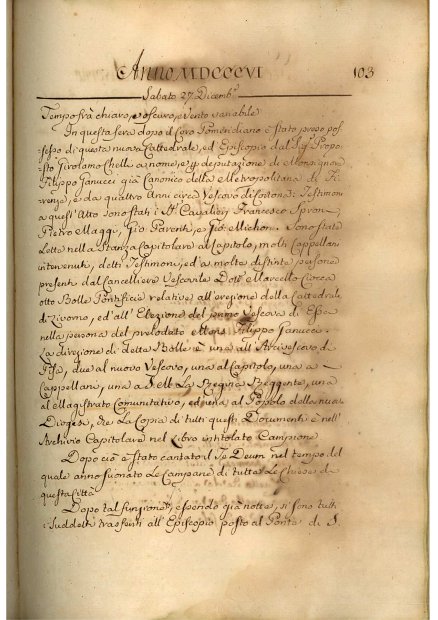 Anno MDCCCVI
103
Sabato 27. Dicemb.e
Tempo frà chiaro, e oscuro, e vento variabile
In questa sera dopo il Coro Pomeridiano è stata preso pos-
sesso di questa nuova Cattedrale, ed Episcopio dal Sig. Propo-
sto Girolamo Chelli a nome, e p deputazione di Monsignore
Filippo Ganucci già Canonico della Metropolitana di Fi-
renze, e da quattro Anni circa Vescovo di Cortona: Testimoni
a quest'Atto sono stati i SS. Cavalieri Francesco Sproni,
Pietro Maggi, Gio Parenti, e Gio: Michon. Sono state
Lette nella Stanza Capitolare al Capitolo, molti Cappellani
intervenuti, detti Testimoni, ed a molte distinte persone
presenti dal Cancelliere Vescovile Dott. Marcello Ciocca
otto Bolle Pontificie relative all'erezione della Cattedrale
di Livorno, ed all'Elezione del primo Vescovo di Essa
nella persona del prelodato Mons. Filippo Ganucci.
La direzione di dette Bolle è una all'Arcivescovo di
Pisa, due al nuovo Vescovo, una al Capitolo, una a
Cappellani, una a S. M. La Regina Reggente, una
al Magistrato Comunitativo, ed una al Popolo della nuova
Diogesi, che La Copia di tutti questi Documenti è nell'
Archivio Capitolare nel Libro intitolato Campione
Dopo ciò è stato cantato il Te Deum nel tempo del
quale anno suonato Le Campane di tutte Le Chiese di
questa Città
Dopo tal funzione, essendo già notte, si sono tutti
i Suddetti trasferiti all'Episcopio posto al Ponte di S.